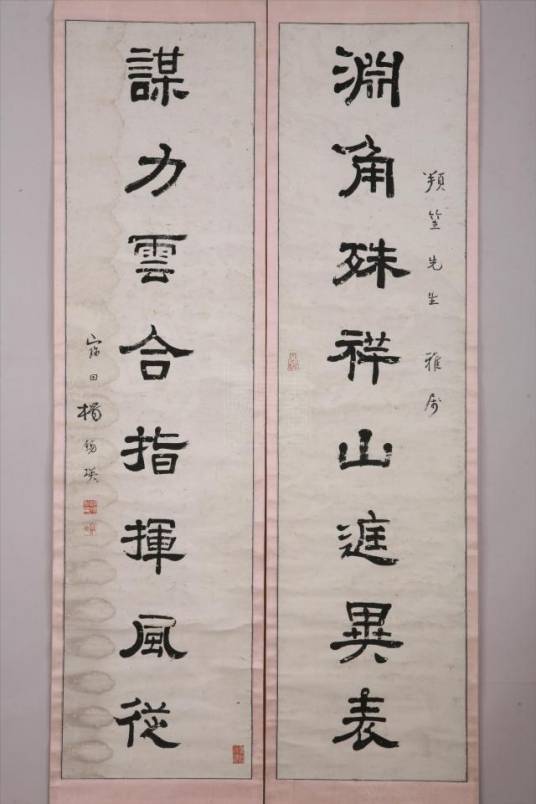 笙先生 雅属
淵角殊祥山庭異表
謀力雲合指揮風從
田楊錫